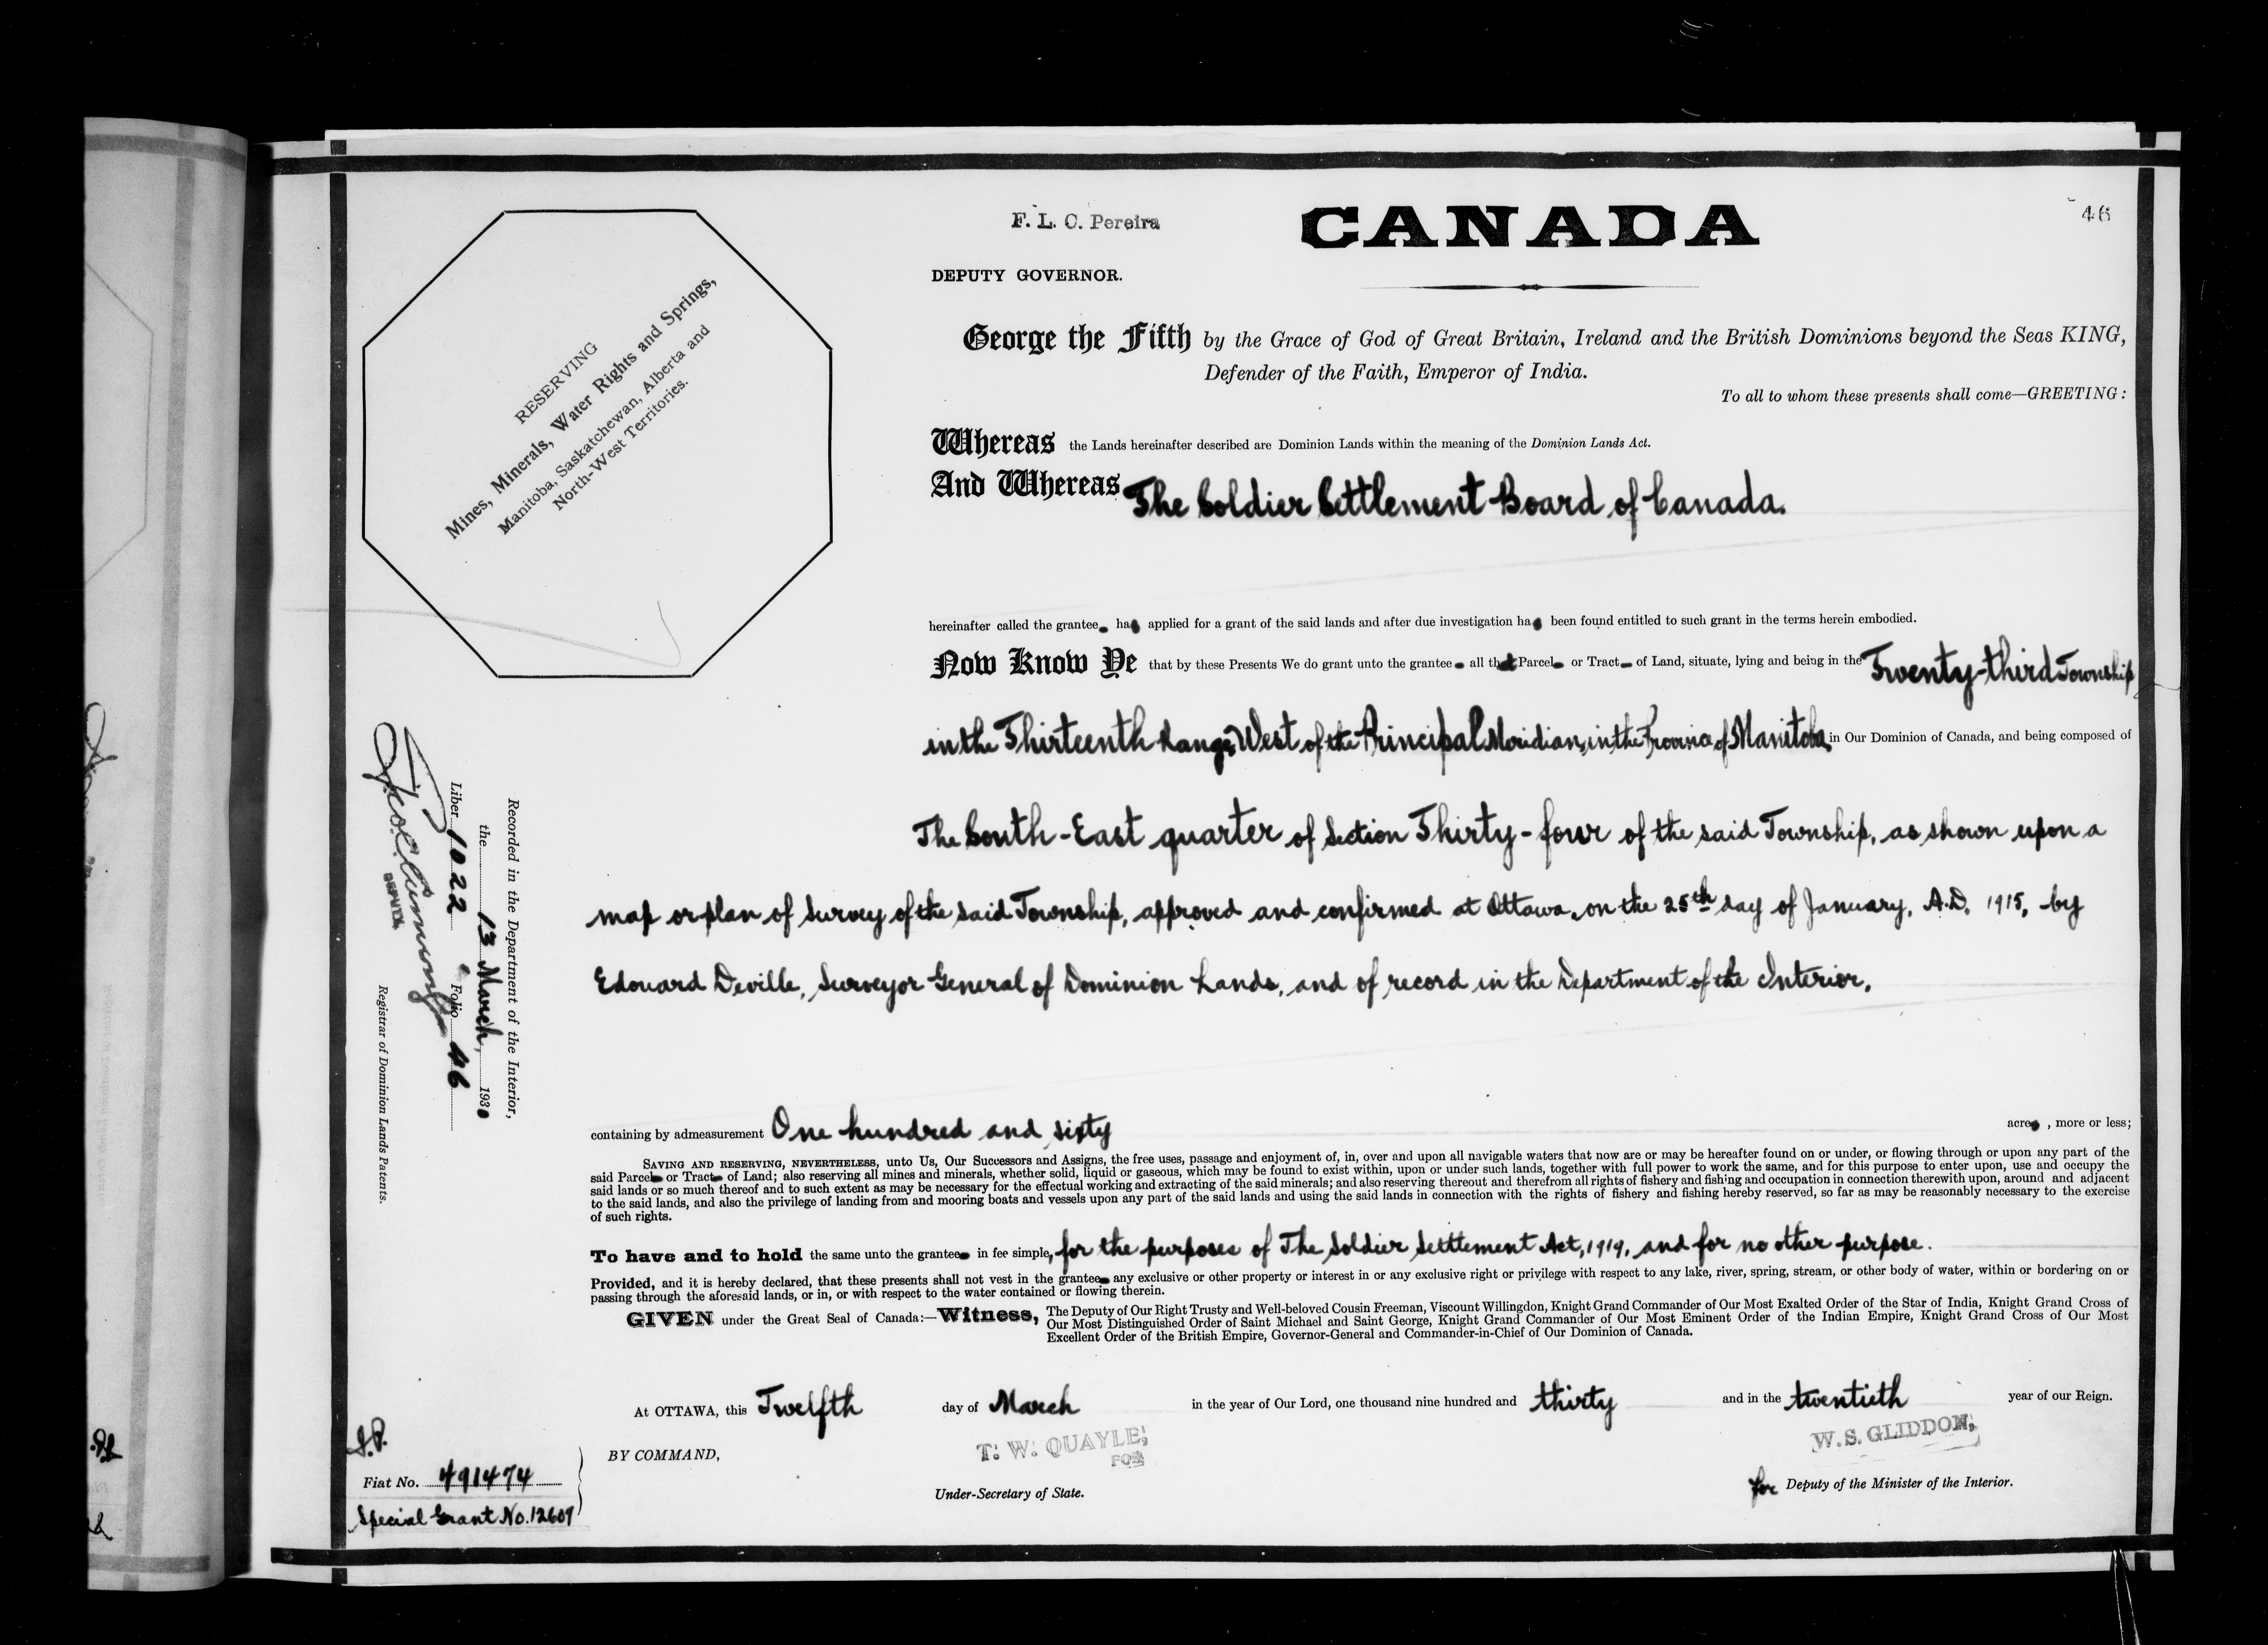 46
F. L. C. Pereira
CANADA
DEPUTY GOVERNOR.
George the Fifth by the Grace of God of Great Britain, Ireland and the British Dominions beyond the Seas KING,
Defender of the Faith, Emperor of India.
To all to whom these presents shall come—GREETING :
RESERVING
Mines, Minerals, Water Rights and Springs,
Manitoba, Saskatchewan, Alberta and
North-West Territories.
Whereas the Lands hereinafter described are Dominion Lands within the meaning of the Dominion Lands Act.
And Whereas The Soldier Settlement Board of Canada.
hereinafter called the grantee has applied for a grant of the said lands and after due investigation has been found entitled to such grant in the terms herein embodied.
Now Know Ye that by these Presents We do grant unto the grantee all that Parcel or Tract of Land, situate, lying and being in the Twenty-third Township
in the Thirteenth Range, West of the Principal Meridian, in the Province of Manitoba, in Our Dominion of Canada, and being composed of
The South-East quarter of Section Thirty-four of the said Township, as shown upon a
map or plan of Survey of the said Township, approved and confirmed at Ottawa, on the 25th day of January, A.D. 1915, by
Edouard Deville, Surveyor General of Dominion Lands, and of record in the Department of the Interior.
Recorded in the Department of the Interior,
the 13 March, 1930
Liber 1022 Folio 46
DEPUTY
Registrar of Dominion Lands Patents.
containing by admeasurement One hundred and sixty acres , more or less;
SAVING AND RESERVING, NEVERTHELESS, unto Us, Our Successors and Assigns, the free uses, passage and enjoyment of, in, over and upon all navigable waters that now are or may be hereafter found on or under, or flowing through or upon any part of the
said Parcel or Tract of Land; also reserving all mines and minerals, whether solid, liquid or gaseous, which may be found to exist within, upon or under such lands, together with full power to work the same, and for this purpose to enter upon, use and occupy the
said lands or so much thereof and to such extent as may be necessary for the effectual working and extracting of the said minerals; and also reserving thereout and therefrom all rights of fishery and fishing and occupation in connection therewith upon, around and adjacent
to the said lands, and also the privilege of landing from and mooring boats and vessels upon any part of the said lands and using the said lands in connection with the rights of fishery and fishing hereby reserved, so far as may be reasonably necessary to the exercise
of such rights.
To have and to hold the same unto the grantee in fee simple, for the purposes of The Soldier Settlement Act, 1919, and for no other purpose.
Provided, and it is hereby declared, that these presents shall not vest in the grantee any exclusive or other property or interest in or any exclusive right or privilege with respect to any lake, river, spring, stream, or other body of water, within or bordering on or
passing through the aforesaid lands, or in, or with respect to the water contained or flowing therein.
GIVEN under the Great Seal of Canada:—Witness, The Deputy of Our Right Trusty and Well-beloved Cousin Freeman, Viscount Willingdon, Knight Grand Commander of Our Most Exalted Order of the Star of India, Knight Grand Cross of
Our Most Distinguished Order of Saint Michael and Saint George, Knight Grand Commander of Our Most Eminent Order of the Indian Empire, Knight Grand Cross of Our Most
Excellent Order of the British Empire, Governor-General and Commander-in-Chief of Our Dominion of Canada.
At OTTAWA, this Twelfth day of March in the year of Our Lord, one thousand nine hundred and thirty and in the twentieth year of our Reign.
BY COMMAND,
T. W. QUAYLE,
FOR
Under-Secretary of State.
W. S. GLIDDON,
for Deputy of the Minister of the Interior.
Fiat No. 491474
Special Grant No. 12607